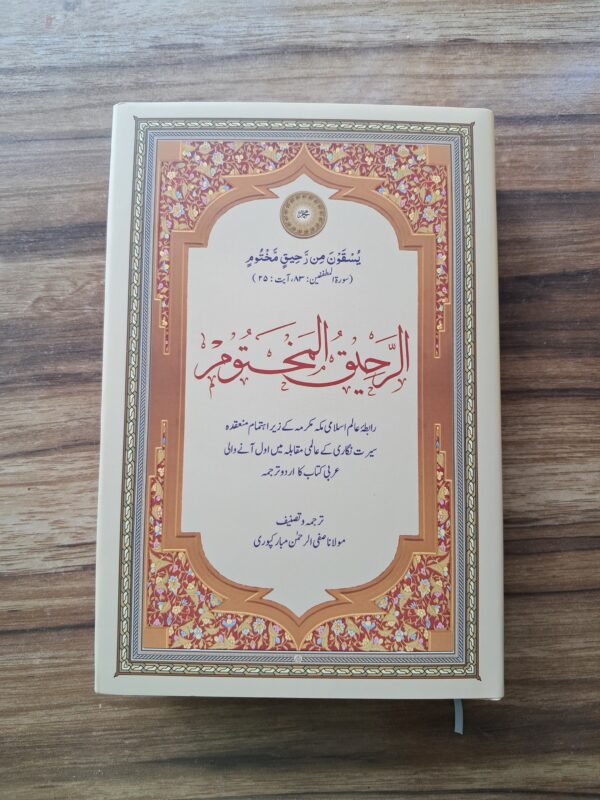 محمد
يُسْقَوْنَ مِن رَّحِيقٍ مَّخْتُومٍ
(سورة المطففين: ۸۳، آیت: ۲۵)
الرَّحِيقُ المَخْتُوم
رابطۂ عالم اسلامی مکہ مکرمہ کے زیر اہتمام منعقدہ
سیرت نگاری کے عالمی مقابلہ میں اول آنے والی
عربی کتاب کا اردو ترجمہ
ترجمہ و تصنیف
مولانا صفی الرحمٰن مبارکپوری